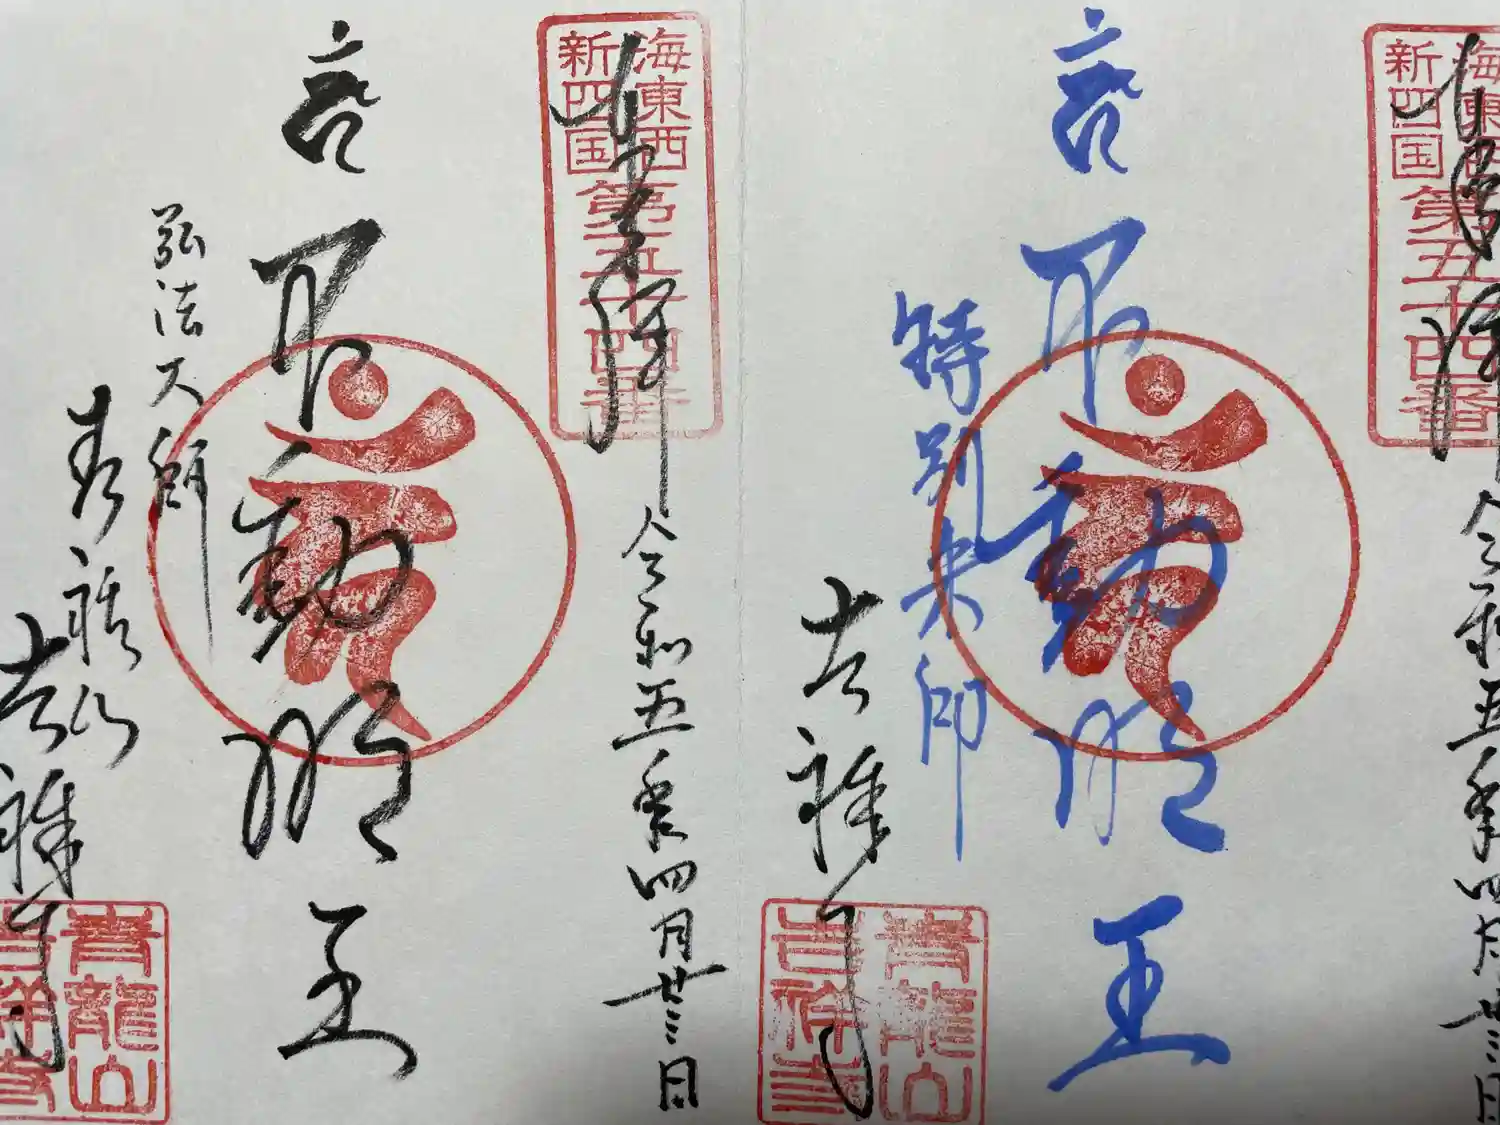 海東西
新四国
第五十四番
令和五年四月廿三日
不動明王
特別朱印
吉祥寺
青龍山
吉祥寺
海東西
新四国
第五十四番
令和五年四月廿三日
不動明王
弘法大師
青龍山
吉祥寺
青龍山
吉祥寺